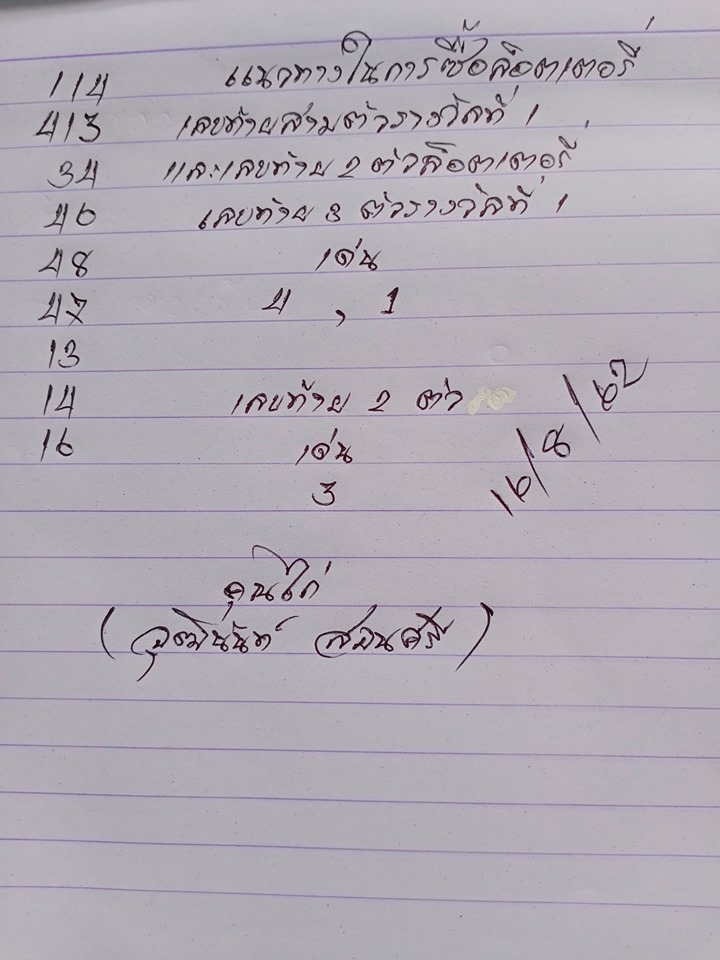 114 แนวทางในการซื้อล็อตเตอรี่
413 เลขท้ายสามตัวรางวัลที่ 1
34 และเลขท้าย 2 ตัวล็อตเตอรี่
46 เลขท้าย 3 ตัวรางวัลที่ 1
48 เด่น
47 4 , 1
13
14 เลขท้าย 2 ตัว
16 เด่น
3
16/8/62
คุณไก่